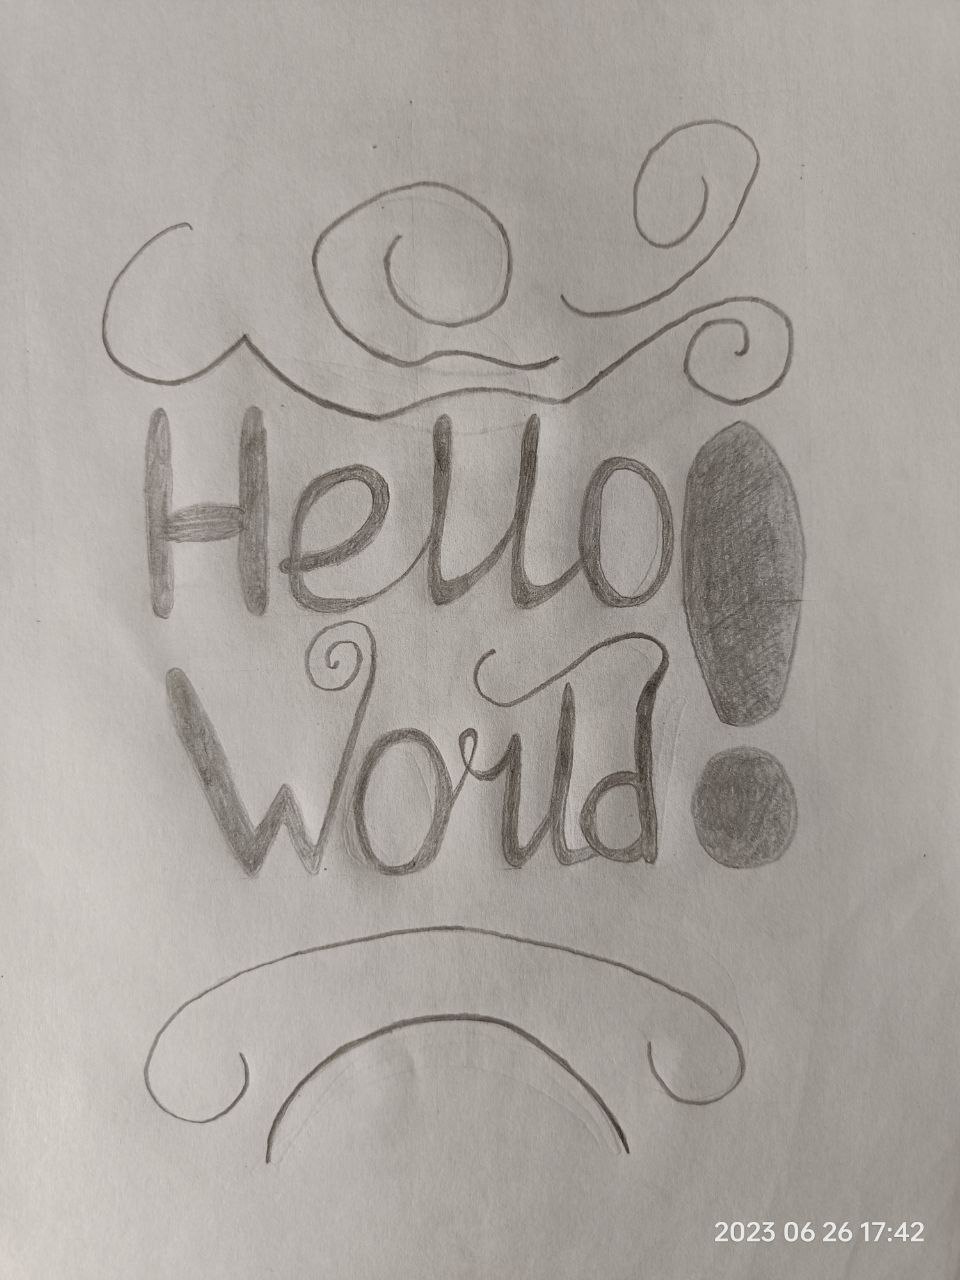 Hello!
World
2023 06 26 17:42